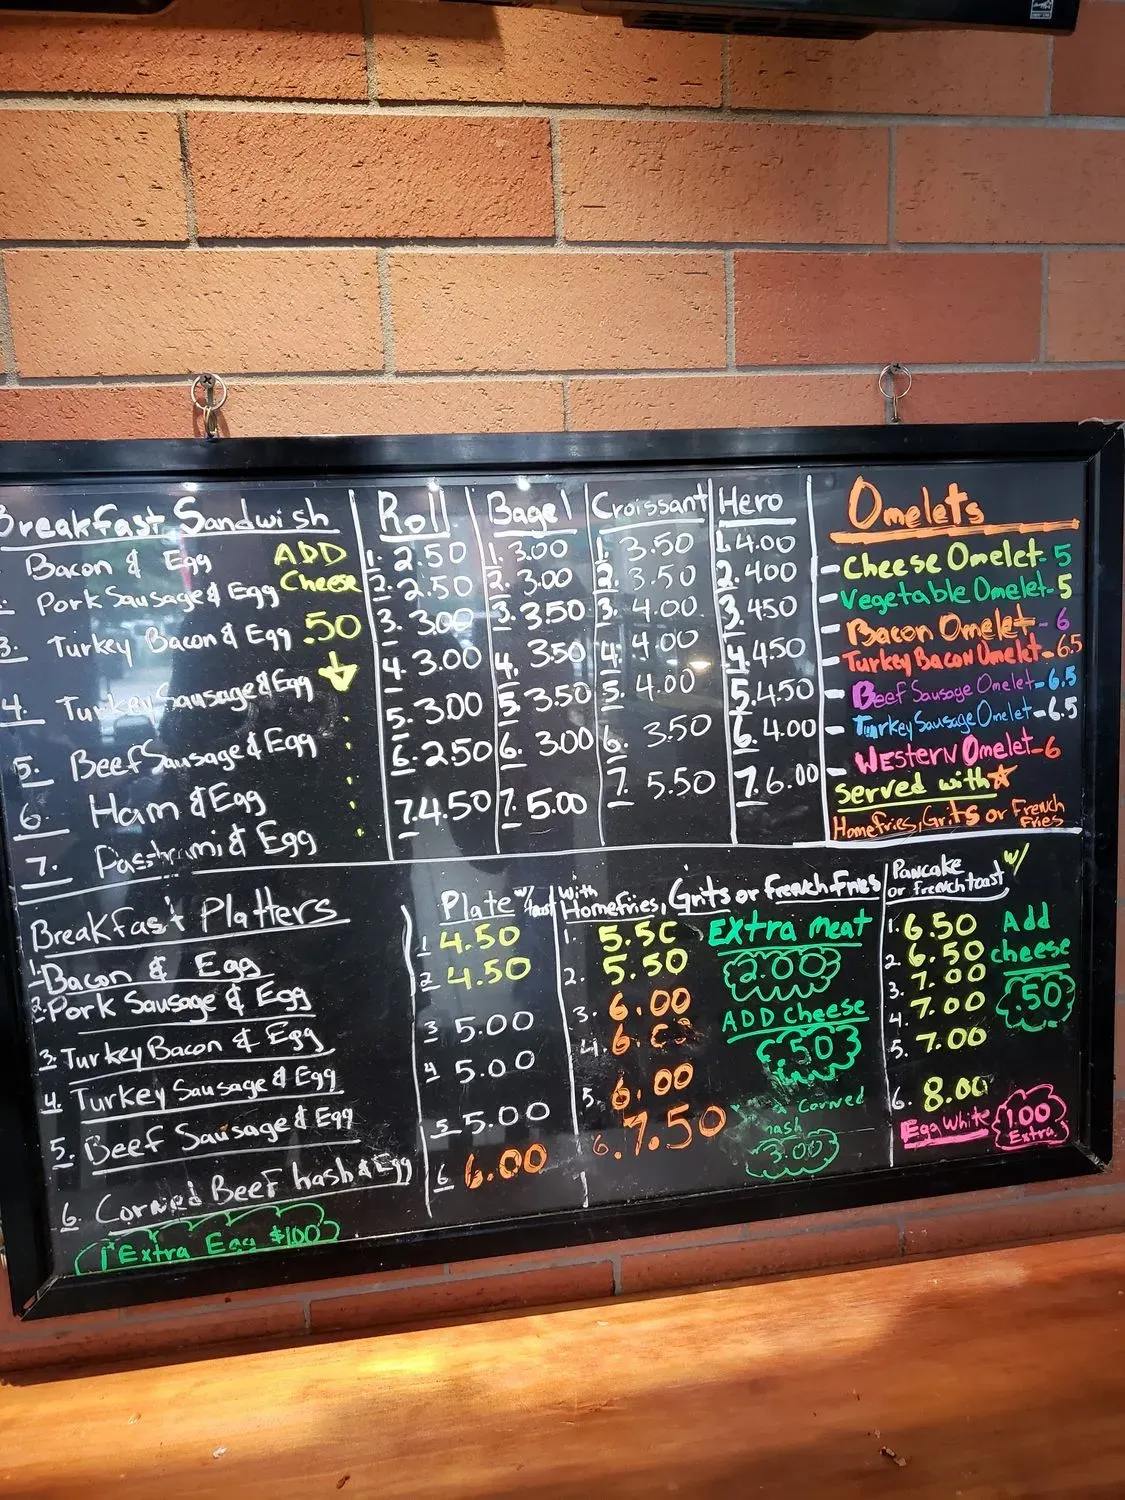 Breakfast Sandwish
Bacon & Egg
Pork Sausage & Egg
3. Turkey Bacon & Egg
4. Turkey Sausage & Egg
5. Beef Sausage & Egg
6. Ham & Egg
7. Passtrami & Egg
ADD
Cheese
.50
Roll
1. 2.50
2. 2.50
3. 3.00
4. 3.00
5. 3.00
6. 2.50
7. 4.50
Bagel
1. 3.00
2. 3.00
3. 3.50
4. 3.50
5. 3.50
6. 3.00
7. 5.00
Croissant
1. 3.50
2. 3.50
3. 4.00
4. 4.00
5. 4.00
6. 3.50
7. 5.50
Hero
1. 4.00
2. 400
3. 450
4. 450
5. 450
6. 4.00
7. 6.00
Omelets
- Cheese Omelet - 5
- Vegetable Omelet - 5
- Bacon Omelet - 6
- Turkey Bacon Omelet - 6.5
- Beef Sausage Omelet - 6.5
- Turkey Sausage Omelet - 6.5
- Western Omelet - 6
Served with
Homefries, Grits or French
Fries
Breakfast Platters
1. Bacon & Egg
2. Pork Sausage & Egg
3. Turkey Bacon & Egg
4. Turkey Sausage & Egg
5. Beef Sausage & Egg
6. Corned Beef hash & Egg
1 Extra Egg $1.00
Plate w/ toast
1 4.50
2 4.50
3 5.00
4 5.00
5 5.00
6 6.00
With
Homefries, Grits or French Fries
1. 5.50
2. 5.50
3. 6.00
4. 6.
5. 6.00
6. 7.50
Extra meat
2.00
ADD cheese
.50
Corned
hash
3.00
Pancake
or french toast w/
1. 6.50
2. 6.50
3. 7.00
4. 7.00
5. 7.00
6. 8.00
Add
cheese
.50
Egg White
1.00
Extra